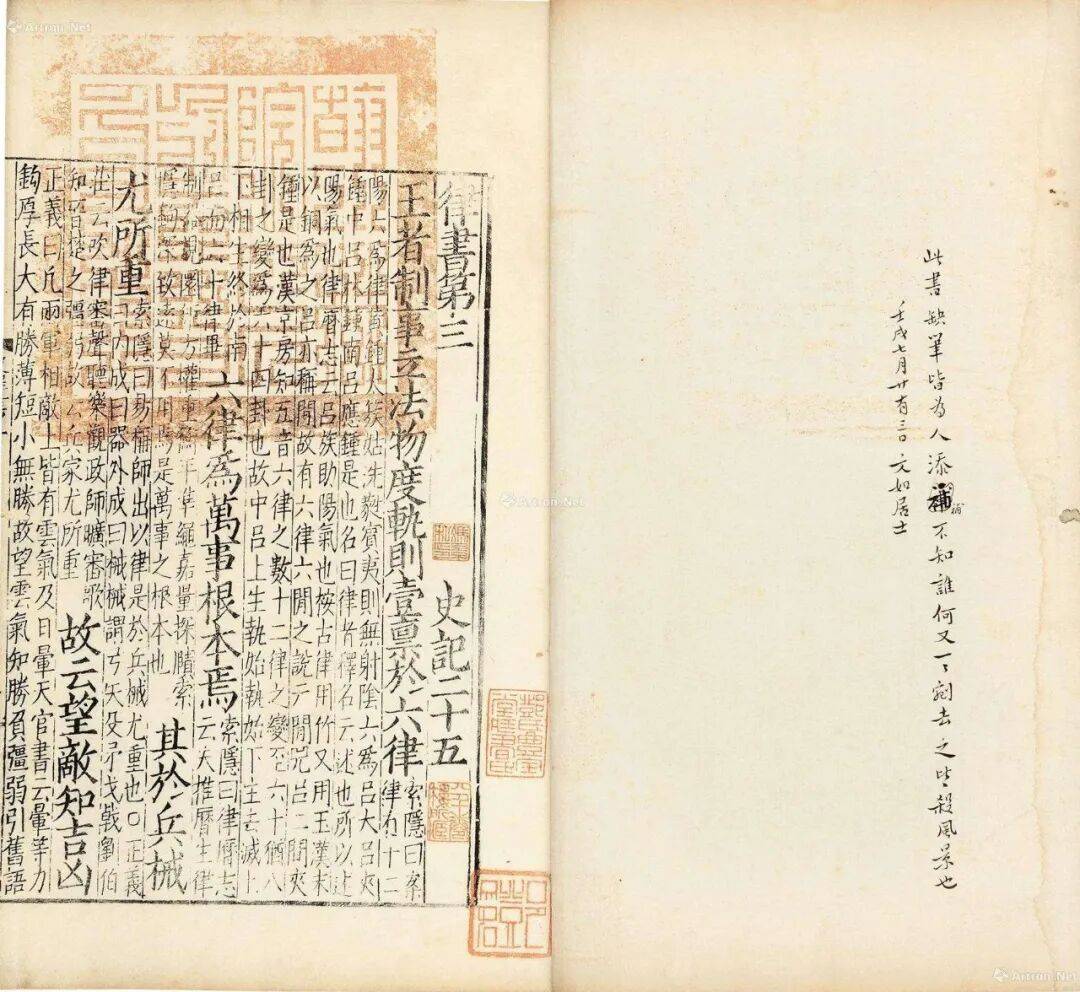 此書缺筆皆為人添補不知誰何又一々剜去之皆殺風景也
補
壬戌七月廿有三日文如居士
律書第三　史記二十五
王者制事立法物度軌則壹稟於六律 索隱曰案
律有十二
陽六為律黃鍾太蔟姑洗蕤賓夷則無射陰六為呂大呂夾
鍾中呂林鍾南呂應鍾是也名曰律者釋名云述也所以述
陽氣也律曆志云呂旅助陽氣也桉古律用竹又用玉漢末
以銅為之呂亦稱閒故有六律六閒之說元閒大呂二閒夾
鍾是也漢京房知五音六律之數十二律之變至六十猶八
卦之變為六十四卦也故中呂上生執始執始下生去滅上
下相生終於南
呂而六十律畢 六律為萬事根本焉 索隱曰律曆志
云夫推曆生律
制器規圜矩方權重衡平準繩嘉量探賾索
隱鉤深致遠莫不用焉是萬事之根本也 其於兵械
尤所重 索隱曰易稱師出以律是於兵械尤重也○正義
曰內成曰器外成曰械械謂弓矢殳矛戈戟劉伯
莊云吹律審聲聽樂觀政師曠審歌
知晉楚之彊弱故云兵家尤所重 故云望敵知吉凶
正義曰凡兩軍相敵上皆有雲氣及日暈天官書云暈等力
鈞厚長大有勝薄短小無勝故望雲氣知勝負彊弱引舊語
翰林院
Artron.Net
Artron.Net
Artron.Net